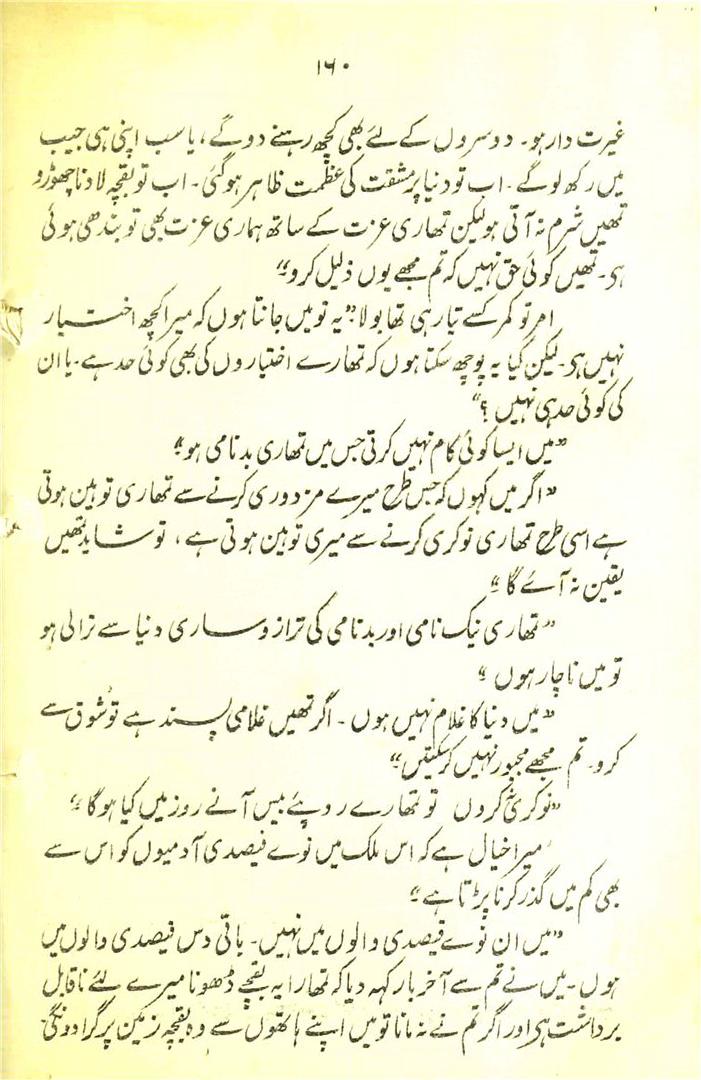 ۱۶۰
غیرت دار ہو۔ دوسروں کے لئے بھی کچھ رہنے دو گے، یا سب اپنی ہی جیب
میں رکھ لو گے۔ اب تو دنیا پر مشقت کی عظمت ظاہر ہو گئی۔ اب تو بقچہ لادنا چھوڑ دو
تمھیں شرم نہ آتی ہو لیکن تمھاری عزت کے ساتھ ہماری عزت بھی تو بندھی ہوئی
ہی۔ تمھیں کوئی حق نہیں کہ تم مجھے یوں ذلیل کرو"
امر تو کمر کسے تیار ہی تھا بولا:" یہ تو میں جانتا ہوں کہ میرا کچھ اختیار
نہیں ہی۔ لیکن کیا یہ پوچھ سکتا ہوں کہ تمھارے اختیاروں کی بھی کوئی حد ہے۔ یا ان
کی کوئی حد ہی نہیں؟"
"میں ایسا کوئی کام نہیں کرتی جس میں تمھاری بدنامی ہو۔"
"اگر میں کہوں کہ جس طرح میرے مزدوری کرنے سے تمھاری توہین ہوتی
ہے اسی طرح تمھاری نوکری کرنے سے میری توہین ہوتی ہے، تو شاید تمھیں
یقین نہ آئے گا۔"
"تمھاری نیک نامی اور بدنامی کی ترازو ساری دنیا سے نرالی ہو
تو میں ناچار ہوں۔"
"میں دنیا کا غلام نہیں ہوں۔ اگر تمھیں غلامی پسند ہے تو شوق سے
کرو۔ تم مجھے مجبور نہیں کر سکتیں۔"
"نوکری نہ کروں تو تمھارے روپئے بیس آنے روز میں کیا ہوگا۔"
"میرا خیال ہے کہ اس ملک میں نوے فیصدی آدمیوں کو اس سے
بھی کم میں گذر کرنا پڑتا ہے۔"
"میں ان نوے فیصدی والوں میں نہیں۔ باقی دس فیصدی والوں میں
ہوں۔ میں نے تم سے آخر بار کہہ دیا کہ تمھارا یہ بقچے ڈھونا میرے لئے ناقابل
برداشت ہی اور اگر تم نے نہ مانا تو میں اپنے ہاتھوں سے وہ بقچہ زمین پر گرا دونگی